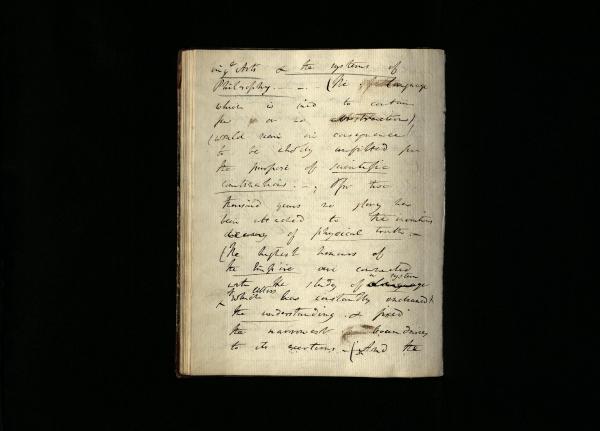 Arts & the systems of
Philosophy. - . - (The language
which is said to contain
few or no abstractions)
(would seem in consequence
to be wholly unfitted for
the purpose of scientific
combinations. - , For two
thousand years no glory has
been attached to the
of physical truths -
(The highest honours of
the Empire are connected
with the study of a system
of letters
which has constantly enchained
the understanding & fixed
the narrowest boundaries
to its exertions - (And the